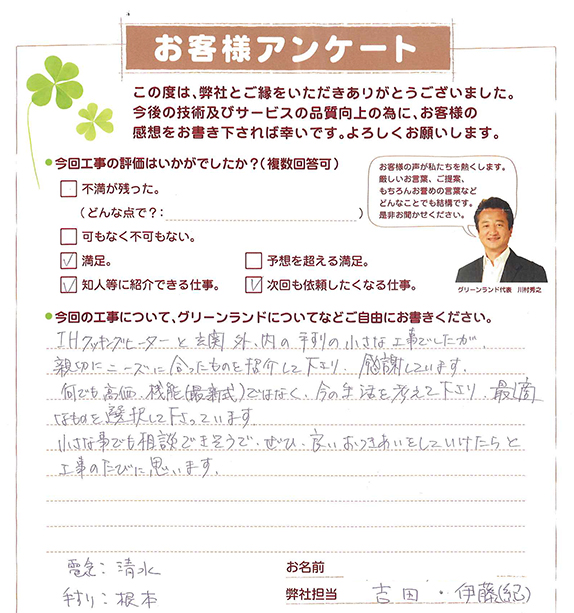 お客様アンケート
この度は、弊社とご縁をいただきありがとうございました。
今後の技術及びサービスの品質向上の為に、お客様の
感想をお書き下されば幸いです。よろしくお願いします。
●今回工事の評価はいかがでしたか？（複数回答可）
不満が残った。
（どんな点で？：　）
可もなく不可もない。
満足。
予想を超える満足。
知人等に紹介できる仕事。
次回も依頼したくなる仕事。
お客様の声が私たちを熱くします。
厳しいお言葉、ご提案、
もちろんお誉めの言葉など
どんなことでも結構です。
是非お聞かせください。
グリーンランド代表　川村秀之
●今回の工事について、グリーンランドについてなどご自由にお書きください。
IHクッキングヒーターと玄関外、内の手すりの小さな工事でしたが、
親切にニーズに合ったものを紹介して下さり、感謝しています。
何でも高価、機能(最新式)ではなく、今の生活を考えて下さり、最適
なものを選択して下さっています。
小さな事でも相談できそうで、ぜひ、良いおつきあいをしていけたらと
工事のたびに思います。
電急：清水
手すり：根本
お名前
弊社担当　吉田・伊藤(紀)